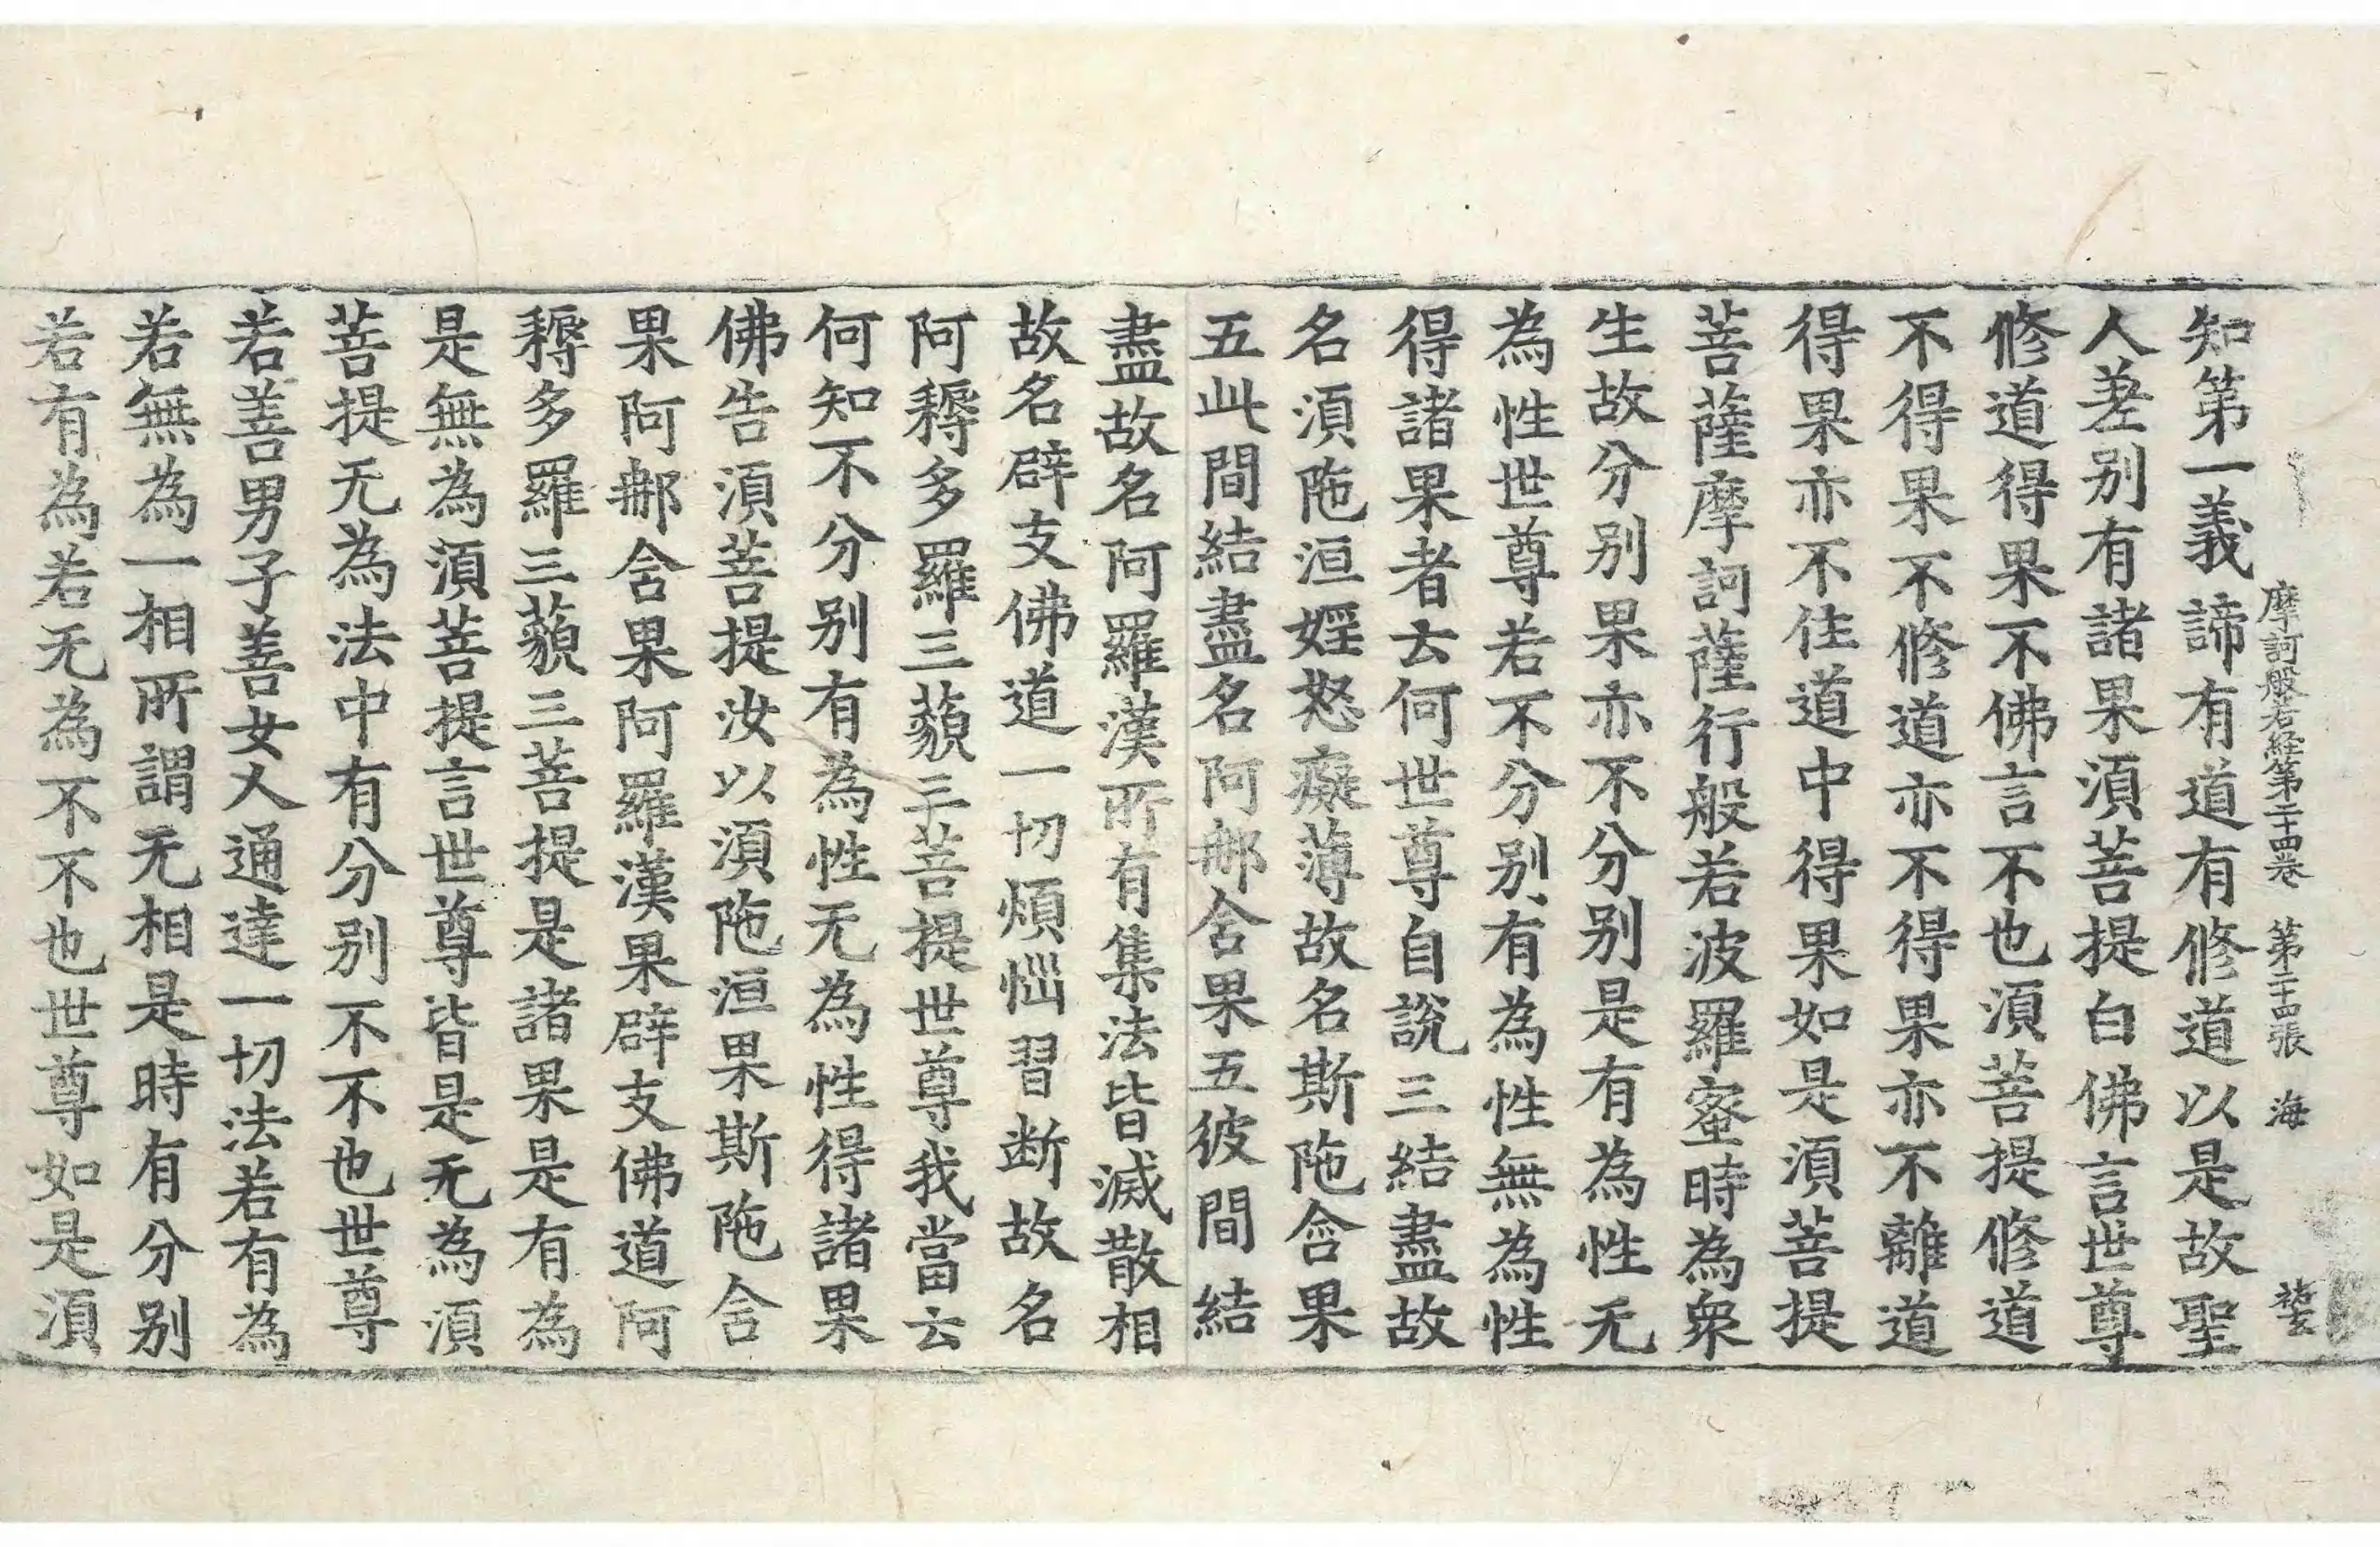 摩訶般若經第二十四卷 第二十四張 海
知第一義諦有道有修道以是故聖
人差別有諸果須菩提白佛言世尊
修道得果不佛言不也須菩提修道
不得果不修道亦不得果亦不離道
得果亦不住道中得果如是須菩提
菩薩摩訶薩行般若波羅蜜時為衆
生故分別果亦不分別是有為性无
為性世尊若不分別有為性無為性
得諸果者云何世尊自說三結盡故
名須陁洹婬怒癡薄故名斯陁含果
五此間結盡名阿那含果五彼間結
盡故名阿羅漢所有集法皆滅散相
故名辟支佛道一切煩惱習断故名
阿耨多羅三藐三菩提世尊我當云
何知不分別有為性无為性得諸果
佛告須菩提汝以須陁洹果斯陁含
果阿那含果阿羅漢果辟支佛道阿
耨多羅三藐三菩提是諸果是有為
是無為須菩提言世尊皆是无為須
菩提无為法中有分別不不也世尊
若善男子善女人通達一切法若有為
若無為一相所謂无相是時有分別
若有為若无為不不也世尊如是須